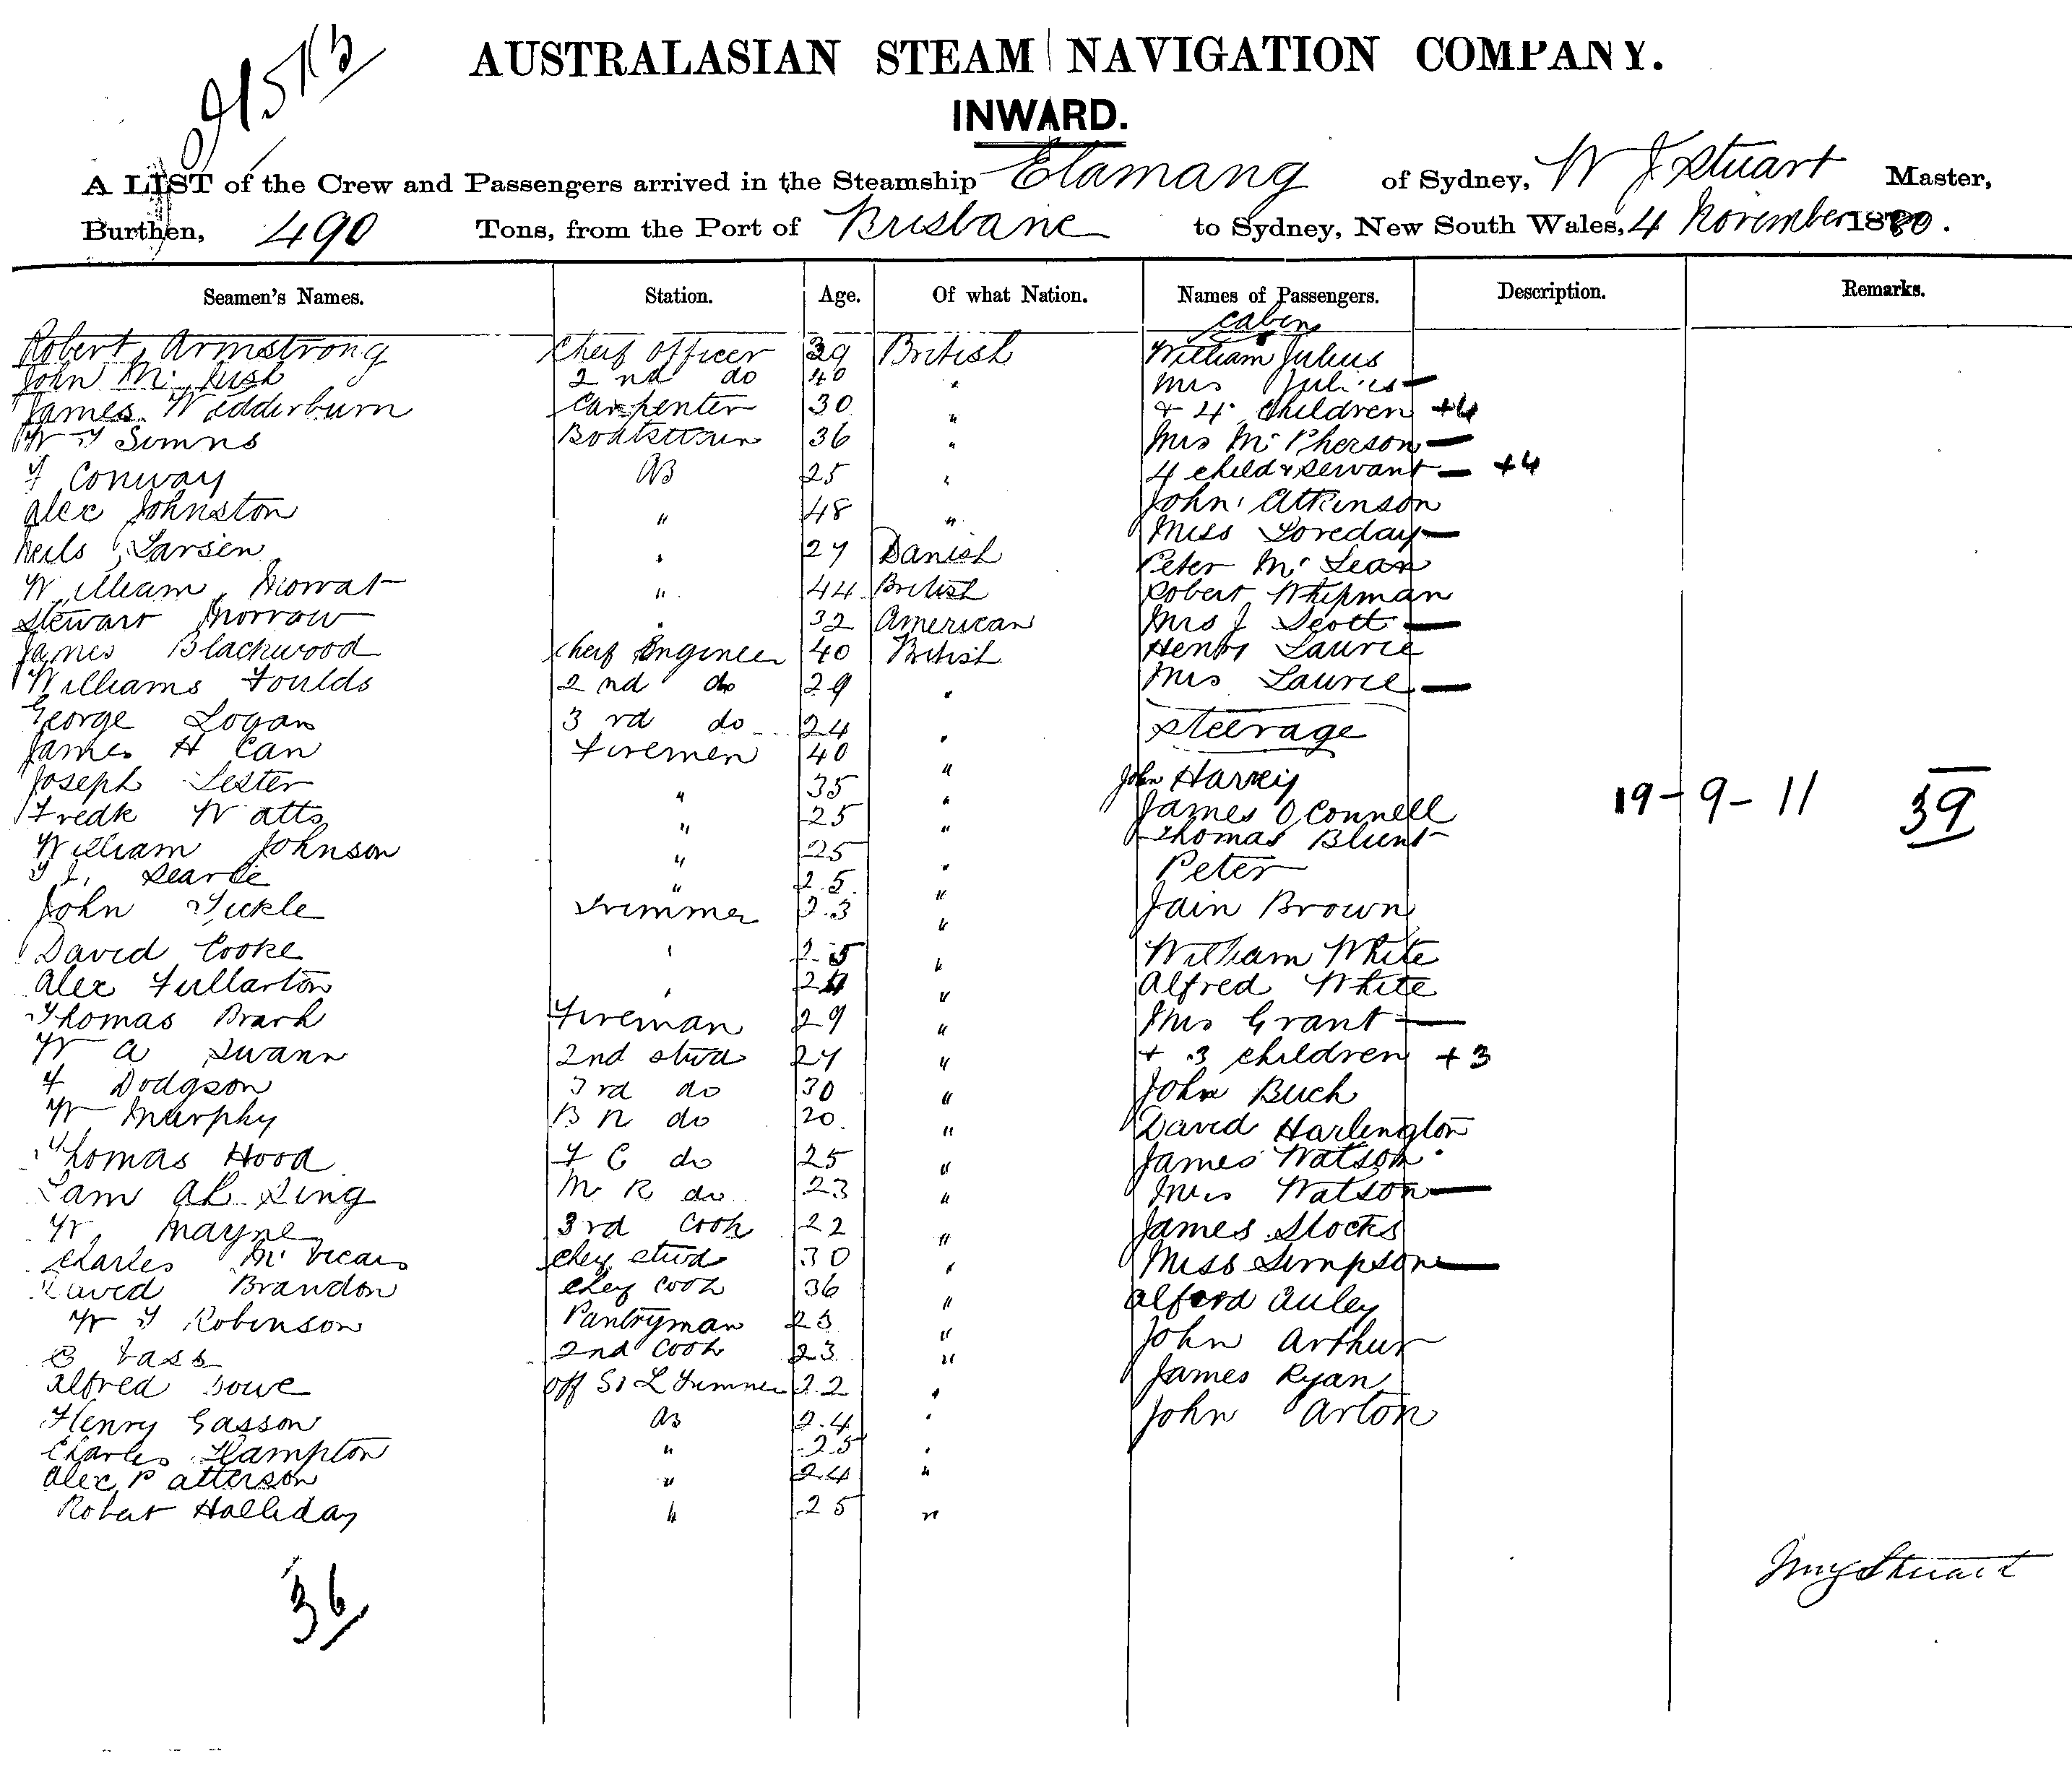 AUSTRALASIAN STEAM NAVIGATION COMPANY.
INWARD.
A LIST of the Crew and Passengers arrived in the Steamship Elamang of Sydney, W J Stuart Master,
Burthen, 490 Tons, from the Port of Brisbane to Sydney, New South Wales, 4 November 1880.
Seamen's Names. Station. Age. Of what Nation. Names of Passengers. Description. Remarks.
Cabin
Robert Armstrong Cheif Officer 39 British William Julius
John Mc 2 nd do 40 " Mrs Julius —
James Wedderburn Carpenter 30 " + 4 Children +4
W Simns 36 " Mrs McPherson —
Conway AB 25 " 4 child & Servant — +4
Alex Johnston " 48 " John Atkinson
Neils Larsen " 27 Danish Miss Loveday —
William Mowat " 44 British Peter McLean
Stewart Morrow " 32 American Robert Whipman
James Blackwood Cheif Engineer 40 British Mrs J Scott —
Williams Foulds 2 nd do 29 " Henry Laurie
George Logan 3 rd do 24 " Mrs Laurie —
Steerage
James H Can Firemen 40 " John Harvey
Joseph Lester " 35 " James O Connell
Fredk Watts " 25 " Thomas Blunt
19-9-11 39
William Johnson " 25 " Peter
Searle " 25 " Jain Brown
John Tickle Trimmer 23 "
David Cooke " 25 " William White
Alex Fullarton " 24 " Alfred White
Thomas Fireman 29 " Mrs Grant —
W A Swann 2nd stwd 27 " + 3 children +3
F Dodgson 3 rd do 30 " John Buch
W Murphy B R do 20 " David Harlington
Thomas Hood F C do 25 " James Watson
Sam Ah Sing M R do 23 " Mrs Watson —
W Mayne 3rd Cook 22 " James Stocks
Charles Mc Vicars Chef stwd 30 " Miss Simpson —
David Brandon Chef Cook 36 " Alford Auley
W Robinson Pantryman 23 " John Arthur
2nd Cook 23 " James Ryan
Alfred off 22 " John Arlon
Henry Gasson AB 24 "
Charles Hampton " 25 "
Alex Patterson " 24 "
Robert Halliday " 25 "
36
Stuart